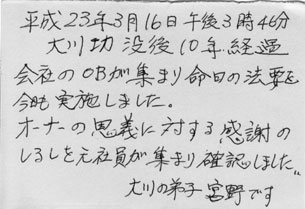 平成23年3月16日午後3時46分
大川功 没後10年経過
会社のOBが集まり命日の法要を
今も実施しました。
オーナーの恩義に対する感謝の
しるしを元社員が集まり確認しました。
大川の弟子 宮野です